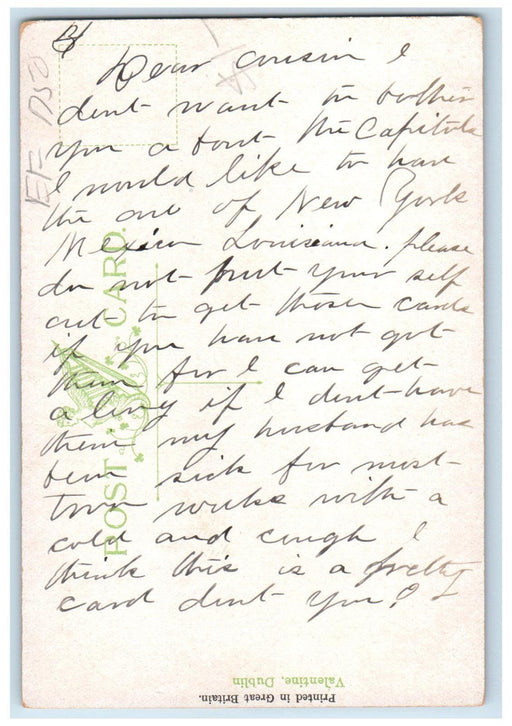 Dear cousin I
dont want to bother
you a bout the Capitols
I would like to have
the one of New York
Mexico Louisiana. please
do not put your self
out to get those cards
if you have not got
them for I can get
a long if I dont have
them my husband has
been sick for most
two weeks with a
cold and cough I
think this is a pretty
card dont you?
POST CARD.
Valentine, Dublin
Printed in Great Britain.